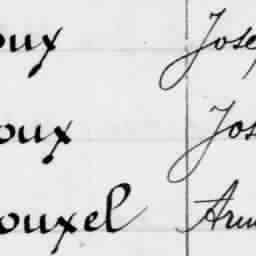 oux Jose
oux Jos
ouxel Arm